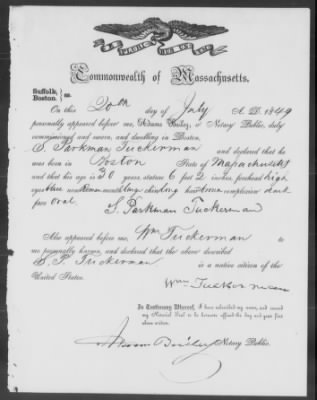 Commonwealth of Massachusetts.
Suffolk,
Boston. ss.
On this 20th day of July A. D. 1849
personally appeared before me, Adams Bailey, a Notary Public, duly
commissioned and sworn, and dwelling in Boston,
S. Parkman Tuckerman and declared that he
was born in Boston State of Massachusetts
and that his age is 30 years stature 6 feet 2 inch, forehead high
eyes blue nose Roman mouth large chin long hair brown complexion dark
face oval.
S. Parkman Tuckerman
Also appeared before me, Wm Tuckerman to
me personally known, and declared that the above described
S. P. Tuckerman is a native citizen of the
United States.
Wm Tuckerman
In Testimony Whereof, I have subscribed my name, and caused
my Notarial Seal to be hereunto affixed the day and year first
above written.
Notary Public.